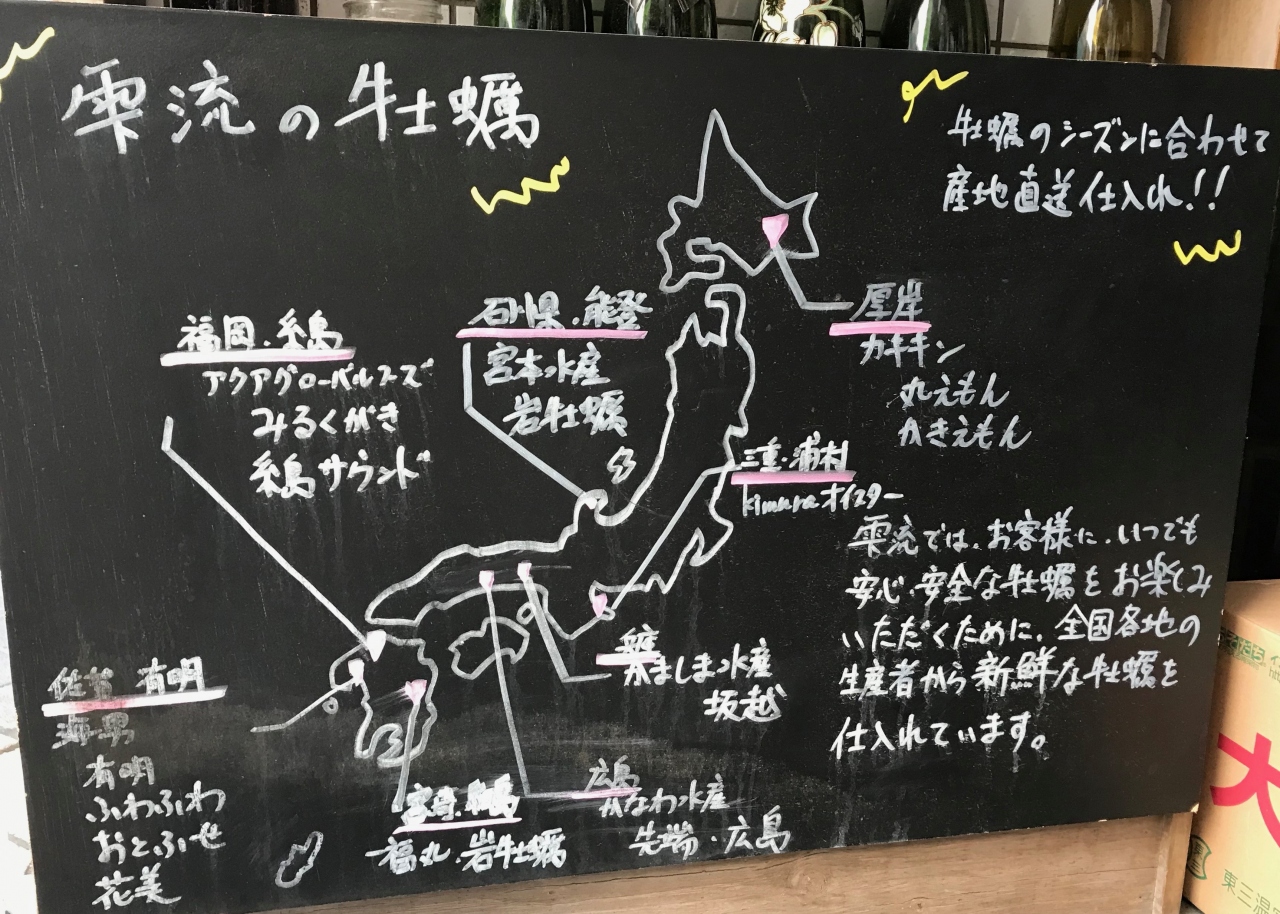 雫流の牡蠣
牡蠣のシーズンに合わせて
産地直送仕入れ!!
厚岸
カキキン
丸えもん
かきえもん
石川県・能登
宮本水産
岩牡蠣
福岡・糸島
アクアグローバルフーズ
みるくがき
糸島サウンド
三重・浦村
kimuraオイスター
雫流では、お客様に、いつでも
安心・安全な牡蠣をお楽しみ
いただくために、全国各地の
生産者から新鮮な牡蠣を
仕入れています。
かましま水産
坂越
佐賀 有明
海男
有明
ふわふわ
おとふせ
花美
広島
かなわ水産
先端・広島
宮崎
福丸・岩牡蠣
大
東三温